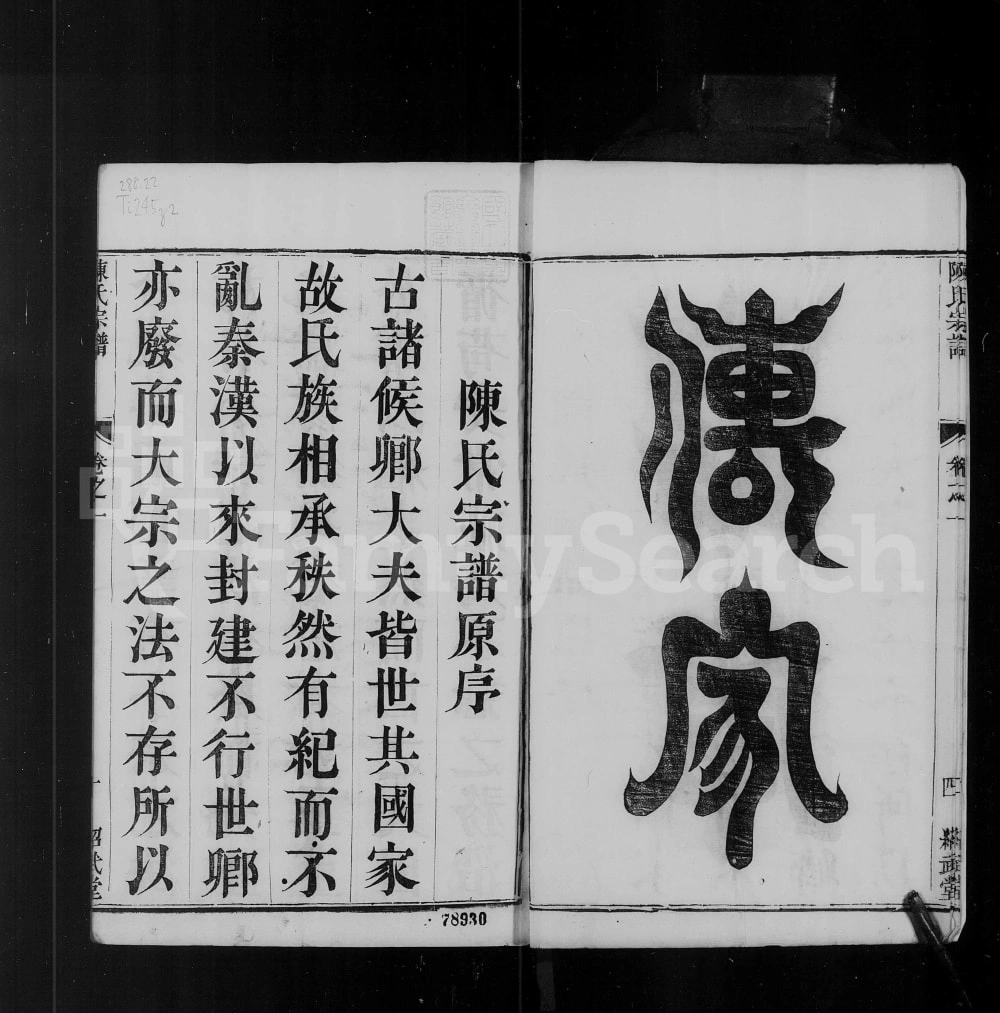 傳家
陳氏宗譜
卷之一
四
陳氏宗譜原序
古諸侯卿大夫皆世其國家
故氏族相承秩然有紀而不
亂秦漢以來封建不行世卿
亦廢而大宗之法不存所以
陳氏宗譜
卷之一
一
78930
288.22
Ti245g2
FamilySearch